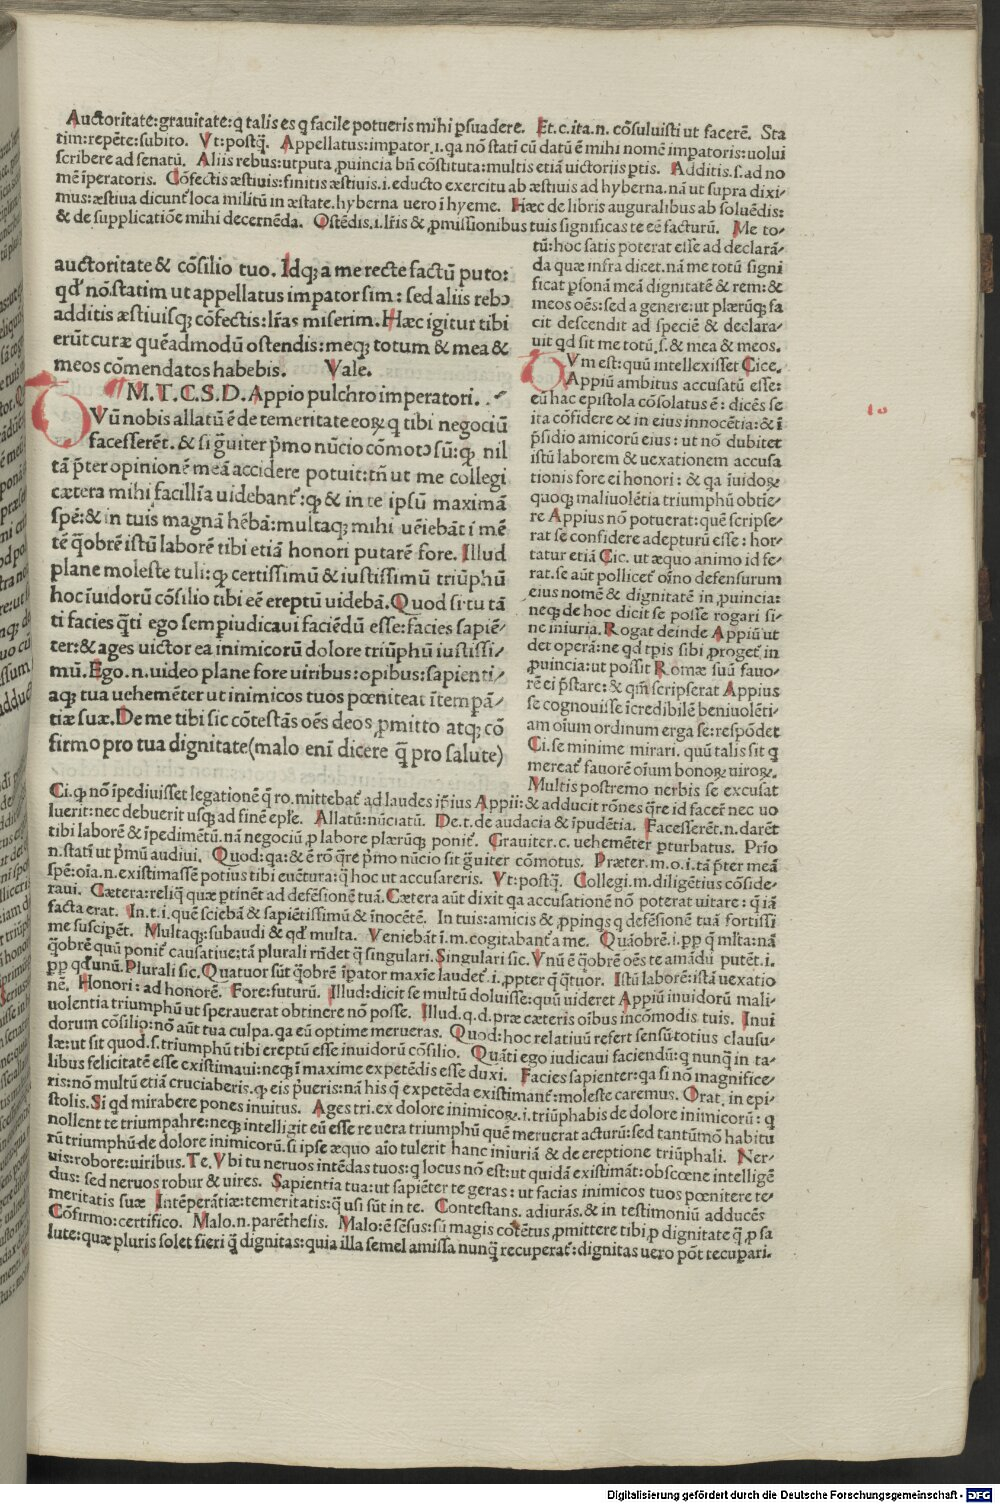 Auctoritate:grauitate:q talis es q facile potueris mihi ꝑsuadere. Et.c.ita.n. cõsuluisti ut facerē. Sta
tim:repēte:subito. Vt:postq̃. Appellatus:imꝑator.i.qa nõ statī cū datū ē mihi nomē imꝑatoris:uolui
scribere ad senatū. Aliis rebus:utputa ꝓuincia bñ cõstituta:multis etiã uictoriis ꝑtis. Additis.s.ad no
mē īperatoris. Cõfectis æstiuis:finitis æstiuis.i.educto exercitu ab æstiuis ad hyberna.nã ut supra dixi-
mus:æstiua dicunt̃ loca militū in æstate.hyberna uero ī hyeme. Hæc de libris auguralibus ab soluēdis:
& de supplicatiõe mihi decernēda. Ostēdis.i.lr̃is & ꝓmissionibus tuis significas te eē facturū. Me to-
tū:hoc satis poterat esse ad declarã/
da quæ infra dicet.nã me totū signi
ficat ꝑsonã meã dignitatē & rem:&
meos oēs:sed a genere:ut plærūq; fa
cit descendit ad speciē & declara-
uit qd sit me totū.s.& mea & meos.
auctoritate & cõsilio tuo. Idq; a me recte factū puto:
qđ nõ statim ut appellatus imꝑator sim: sed aliis rebɔ
additis æstiuisq; cõfectis:lr̃as miserim. Hæc igitur tibi
erūt curæ quēadmodū ostendis:meq; totum & mea &
meos cõmendatos habebis. Vale.
M.T.C.S.D. Appio pulchro imperatori.
QVū nobis allatū ē de temeritate eoꝝ q tibi negociū
facesserēt.& si g̃uiter p̃mo nūcio cõmotɔ sū:ꝙ nil
tã p̃ter opinionē meã accidere potuit:tñ ut me collegi
cætera mihi facillīa uidebant̃:ꝙ & in te ipsū maximã
spē:& in tuis magnã hēbã:multaq; mihi uēiebãt ī mē
tē q̃obrē istū laborē tibi etiã honori putarē fore. Illud
plane moleste tuli:ꝙ certissimū & iustissimū triūphū
hoc īuidorū cõsilio tibi eē ereptū uidebã. Quod si tu tã
ti facies q̃ti ego semꝑ iudicaui faciēdū esse:facies sapiē-
ter:& ages uictor ea inimicorū dolore triūphū iustissi-
mū. Ego.n.uideo plane fore uiribus:opibus:sapienti/
aq; tua uehemēter ut inimicos tuos pœniteat ītempã-
tiæ suæ. De me tibi sic cõtestãs oēs deos ꝓmitto atq; cõ
firmo pro tua dignitate(malo enī dicere q̃ pro salute)
QVm est:quū intellexisset Cice.
Appiū ambitus accusatū esse:
eū hac epistola cõsolatus ē: dicēs se
ita cõfidere & in eius innocētia:& ī
p̃sidio amicorū eius: ut nõ dubitet
istū laborem & uexationem accusa
tionis fore ei honori: & qa īuidoꝝ
quoq; maliuolētia triumphū obtīe-
re Appius nõ potuerat:quē scripse-
rat se confidere adepturū esse: hor-
tatur etiã Cic. ut æquo animo id fe-
rat.se aūt pollicet̃ oīno defensurum
eius nomē & dignitatē in ꝓuincia:
neq; de hoc dicit se posse rogari si-
ne iniuria. Rogat deinde Appiū ut
det operã:ne qd tꝑis sibi ꝓroget̃ in
ꝓuincia:ut possit Romæ suū fauo-
rē ei p̃stare:& qm̃ scripserat Appius
se cognouisse īcredibilē beniuolēti-
am oīum ordinum erga se:respõdet
Ci.se minime mirari. quū talis sit q
mereat̃ fauorē oīum bonoꝝ uiroꝝ.
Multis postremo uerbis se excusat
Ci.ꝙ nõ īpediuisset legationē q̃ ro.mittebat̃ ad laudes ip̃ius Appii:& adducit rõnes q̃re id facer̃ nec uo
luerit:nec debuerit usq; ad finē epl̃e. Allatū:nūciatū. De.t.de audacia & īpudētia. Facesserēt.n.darēt
tibi laborē & īpedimētū.nã negociū ꝓ labore plærūq; ponit̃. Grauiter.c. uehemēter ꝑturbatus. Prīo
n.statī ut p̃mū audiui. Quod:qa:& ē rõ q̃re p̃mo nūcio sit g̃uiter cõmotus. Præter.m.o.i.tã p̃ter meã
spē:oīa.n.existimassē potius tibi euētura:q̃ hoc ut accusareris. Vt:postq̃. Collegi.m.diligētius cõside-
raui. Cætera:reliq̃ quæ ꝑtinēt ad defēsionē tuã. Cætera aūt dixit qa accusationē nõ poterat uitare: q iã
facta erat. In.t.i.quē sciebã & sapiētissimū & īnocētē. In tuis:amicis & ꝓpinqs q defēsionē tuã fortissi
me suscipēt. Multaq;:subaudi & qđ multa. Veniebãt ī.m.cogitabant̃ a me. Quãobrē.i.ꝓp q̃ ml̃ta:nã
q̃obrē quū ponit̃ causatiue:tã plurali rñdet q̃ singulari. Singulari sic. Vnū ē q̃obrē oēs te amãdū putēt.i.
ꝓp qđ unū. Plurali sic. Quatuor sūt q̃obrē īpator maxīe laudet̃.i.ꝓpter q̃ q̃tuor. Istū laborē:istã uexatio
nē. Honori: ad honorē. Fore:futurū. Illud:dicit se multū doluisse:quū uideret Appiū inuidorū mali-
uolentia triumphū ut sperauerat obtinere nõ posse. Illud.q.d.præ cæteris oībus incõmodis tuis. Inui
dorum cõsilio:nõ aūt tua culpa.qa eū optime merueras. Quod:hoc relatiuū refert sensū totius clausu-
læ:ut sit quod.s.triumphū tibi ereptū esse inuidorū cõsilio. Quãti ego iudicaui faciendū:q nunq̃ in ta-
libus felicitatē esse existimaui:neq; ī maxime expetēdis esse duxi. Facies sapienter:qa si nõ magnifice-
ris:nõ multū etiã cruciaberis.ꝙ eis p̃ueris:nã his q expetēda existimant̃:moleste caremus. Orat̃ in epi-
stolis. Si qd mirabere pones inuitus. Ages tri.ex dolore inimicoꝝ.i.triūphabis de dolore inimicorū: q
nollent te triumpahre:neq; intelligit eū esse re uera triumphū quē meruerat acturū:sed tantūmõ habitu
rū triumphū de dolore inimicorū.si ipse æquo aīo tulerit hanc iniuriã & de ereptione triūphali. Ner-
uis:robore:uiribus. Te. Vbi tu neruos intēdas tuos:q locus nõ est:ut quidã existimãt:obscœne intelligē
dus: sed neruos robur & uires. Sapientia tua:ut sapiēter te geras: ut facias inimicos tuos pœnitere te-
meritatis suæ Intēperãtiæ:temeritatis:q̃ usi sūt in te. Contestans.adiurãs.& in testimoniū adducēs
Cõfirmo:certifico. Malo.n.parēthesis. Malo:ē sēsus:sū magis cõtētus ꝓmittere tibi ꝓ dignitate q̃ ꝓ sa
lute:quæ pluris solet fieri q̃ dignitas:quia illa semel amissa nunq̃ recuperat̃:dignitas uero põt recuꝑari.
10
Digitalisierung gefördert durch die Deutsche Forschungsgemeinschaft - DFG